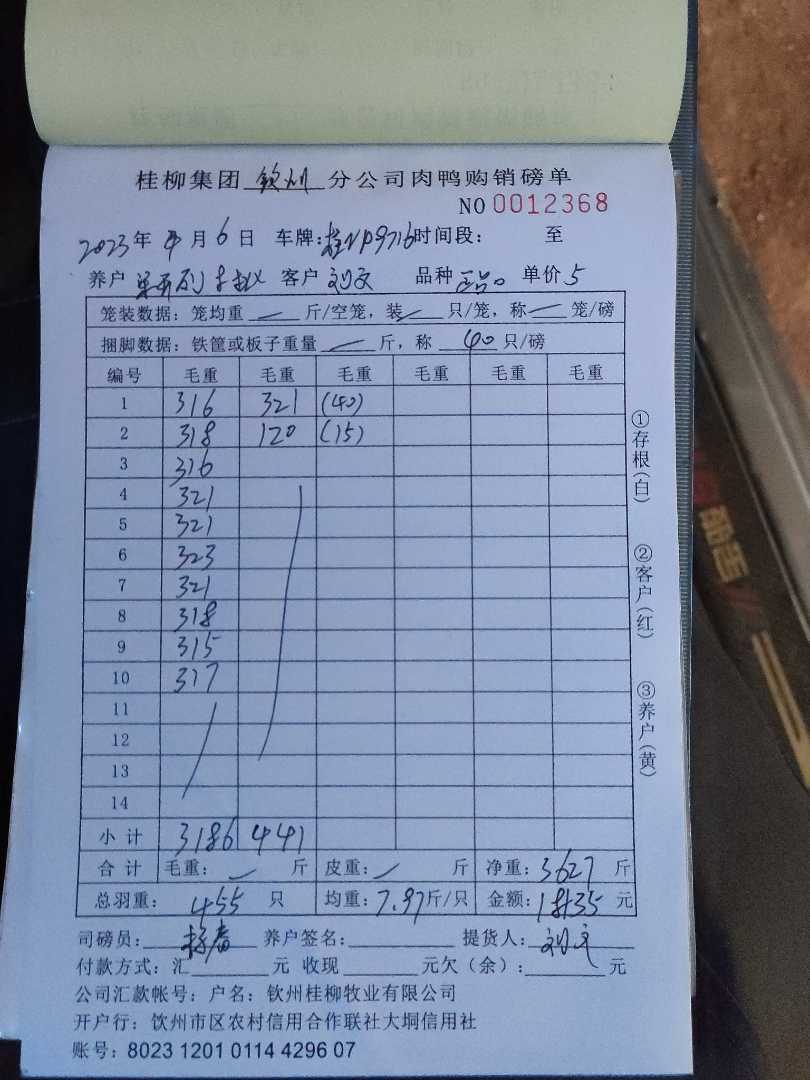 桂柳集团 钦州 分公司肉鸭购销磅单
NO 0012368
2023年 4月 6日 车牌:桂NP9716 时间段: 至
养户 客户 刘文 品种 单价 5
笼装数据:笼均重 — 斤/空笼,装 — 只/笼,称 — 笼/磅
捆脚数据:铁筐或板子重量 — 斤,称 40 只/磅
编号 毛重 毛重 毛重 毛重 毛重 毛重
1 316 321 (40)
2 318 120 (15)
3 316
4 321
5 321
6 323
7 321
8 318
9 315
10 317
11
12
13
14
小计 3186 441
合计 毛重: — 斤 皮重: — 斤 净重:3627 斤
总羽重: 455 只 均重:7.97斤/只 金额:18135 元
司磅员: 养户签名: 提货人:刘文
付款方式:汇 元 收现 元欠(余): 元
公司汇款帐号:户名:钦州桂柳牧业有限公司
开户行:饮州市区农村信用合作联社大垌信用社
账号:8023 1201 0114 4296 07
①存根(白)
②客户(红)
③养户(黄)